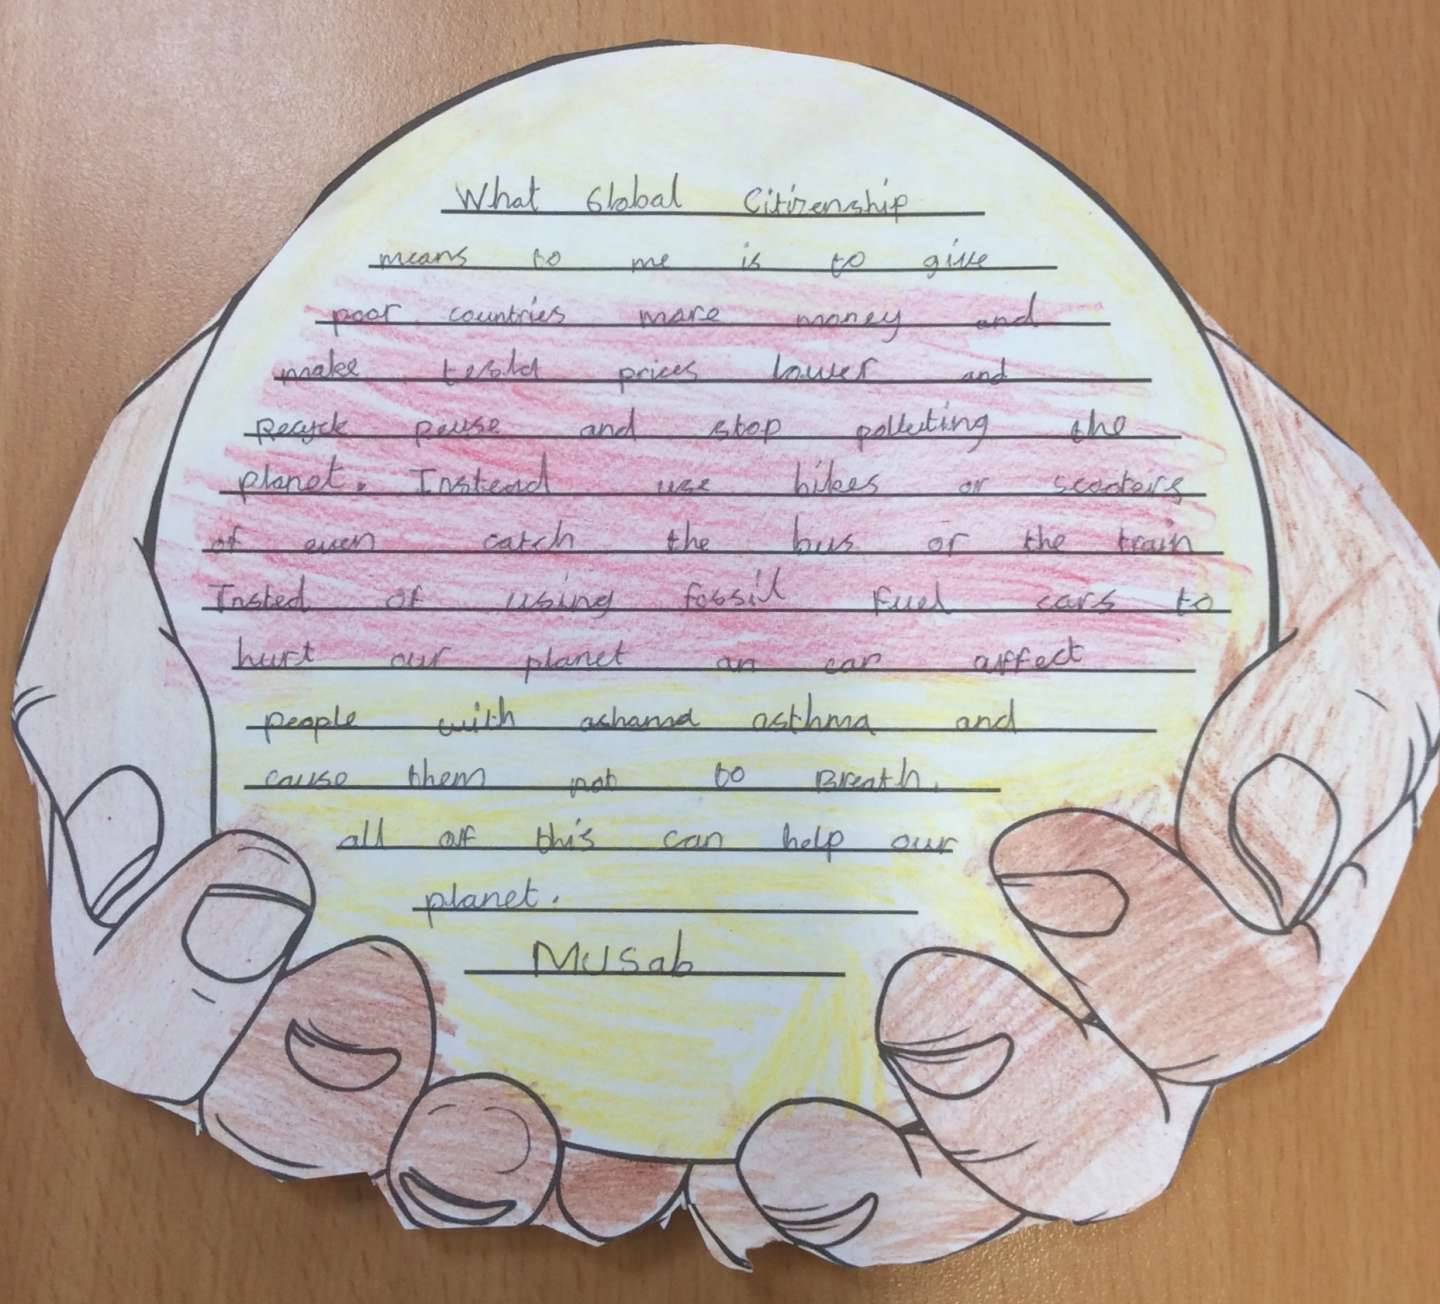 What Global Citizenship
means to me is to give
poor countries more money and
make tesla prices lower and
Recycle reuse and stop polluting the
planet. Instead use bikes or scooters
of even catch the bus or the train
Insted of using fossil fuel cars to
hurt our planet an car affect
people with ashama asthma and
cause them not to Breath.
all of this can help our
planet.
Musab